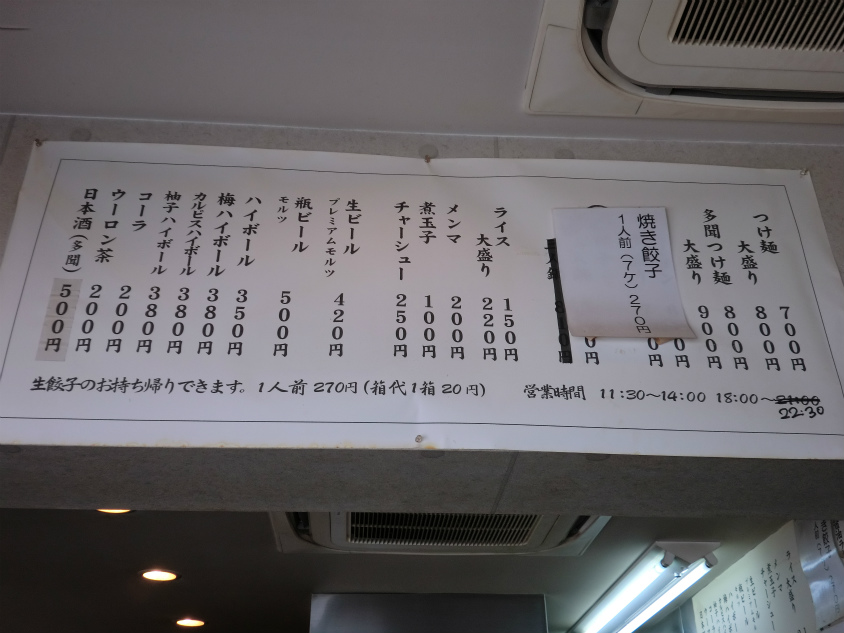 つけ麺 700円
大盛り 800円
多聞つけ麺 800円
大盛り 900円
焼き餃子
1人前(7ケ)270円
ライス 150円
大盛り 220円
メンマ 200円
煮玉子 100円
チャーシュー 250円
生ビール 420円
プレミアムモルツ
瓶ビール 500円
モルツ
ハイボール 350円
梅ハイボール 380円
カルピスハイボール 380円
柚子ハイボール 380円
コーラ 200円
ウーロン茶 200円
日本酒(多聞) 500円
生餃子のお持ち帰りできます。1人前270円(箱代1箱20円)
営業時間 11:30~14:00 18:00~21:00
22:30
ライス
大盛り
メンマ
煮玉子
チャーシュー